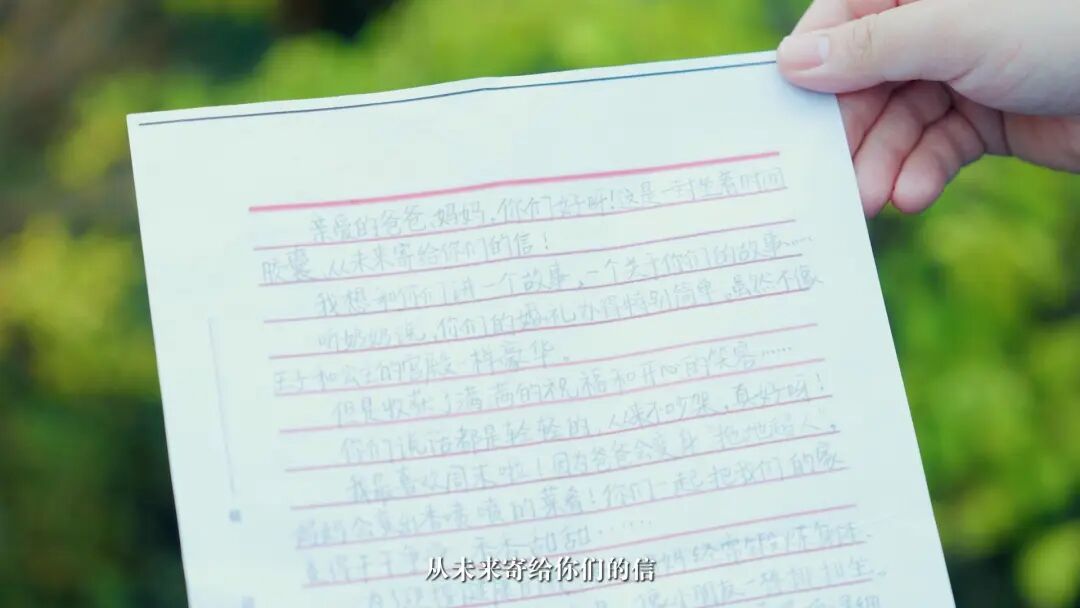 亲爱的爸爸、妈妈，你们好呀！这是一封坐着时间
胶囊，从未来寄给你们的信！
我想和你们讲一个故事，一个关于你们的故事……
听奶奶说，你们的婚礼办得特别简单，虽然不像
王子和公主的宫殿一样豪华。
但是收获了满满的祝福和开心的笑容……
你们说话都是轻轻的，从来不吵架，真好呀！
我最喜欢周末啦！因为爸爸会变身“拖地超人”，
妈妈会变出香喷喷的菜肴！你们一起把我们的家
变得干干净净、香香甜甜……
从未来寄给你们的信